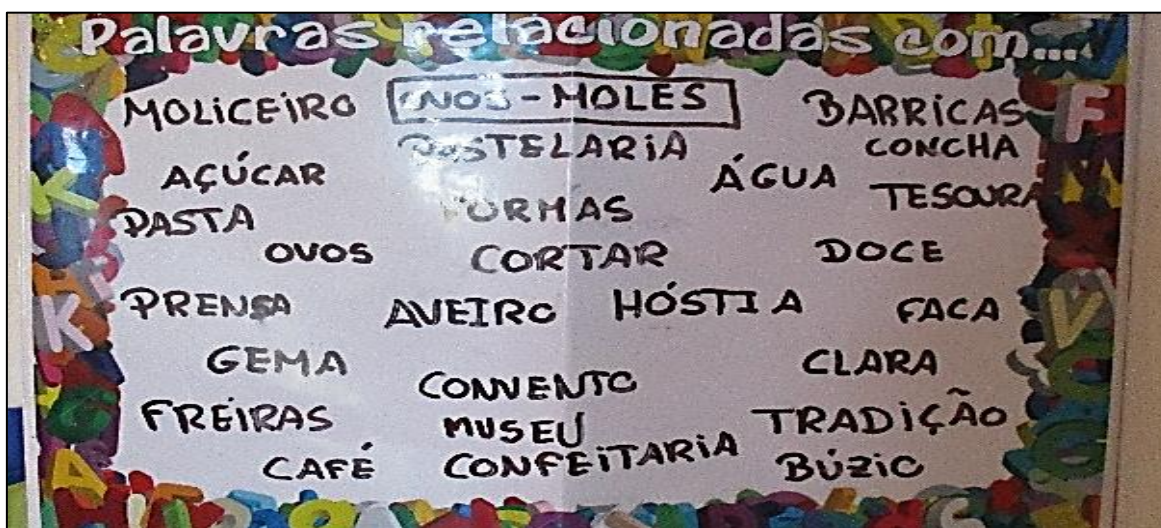 Palavras relacionadas com...
MOLICEIRO OVOS-MOLES BARRICAS
PASTELARIA CONCHA
AÇÚCAR ÁGUA TESOURA
PASTA FORMAS
OVOS CORTAR DOCE
PRENSA AVEIRO HÓSTIA FACA
GEMA CLARA
CONVENTO
FREIRAS MUSEU TRADIÇÃO
CAFÉ CONFEITARIA BÚZIO